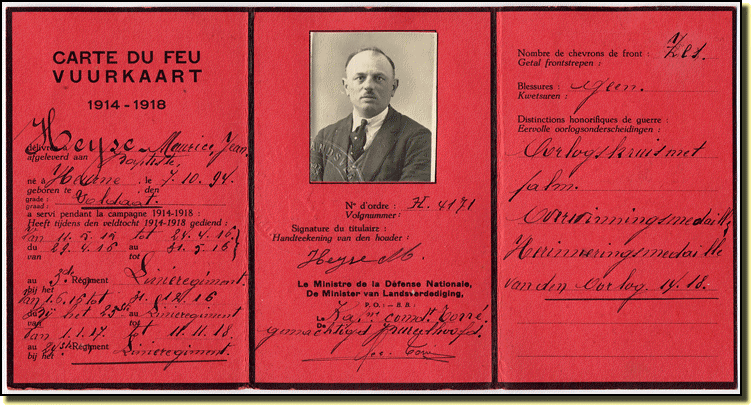 CARTE DU FEU
VUURKAART
1914-1918
Heyse Maurice, Jean
délivrée à
afgeleverd aan Baptiste,
né à le 7.10.94.
geboren te den
grade: Soldaat.
graad:
a servi pendant la campagne 1914-1918:
Heeft tijdens den veldtocht 1914-1918 gediend:
Van 11.2.12 tot 24.4.16
du au
van 29.4.16 tot 31.5.16
au 3de Régiment Linieregiment.
bij het
Van 1.6.16 tot 31.12.16
bij het 23ste Linieregiment
van 1.1.17 tot 11.11.18
au Régiment
bij het Linieregiment.
N° d'ordre: H. 4171
Volgnummer:
Signature du titulaire:
Handteekening van den houder:
Heyse M.
Le Ministre de la Défense Nationale,
De Minister van Landsverdediging,
P.O.: B.B.:
Le
De comdt. Torré,
gemachtigd
Nombre de chevrons de front: Zes.
Getal frontstrepen:
Blessures: geen.
Kwetsuren:
Distinctions honorifiques de guerre:
Eervolle oorlogsonderscheidingen:
Oorlogskruis met
palm.
Overwinningsmedaille
Herinneringsmedaille
van den Oorlog 14.18.